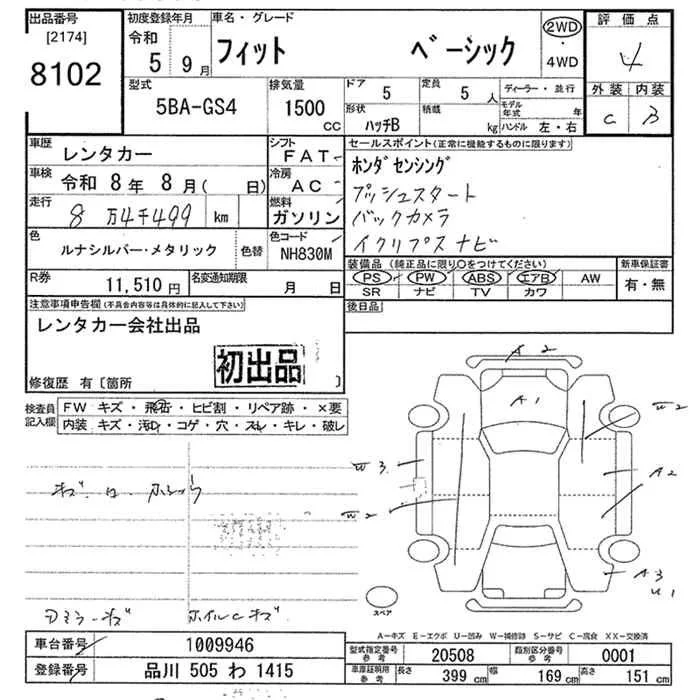 出品番号
[2174]
8102
初度登録年月
令和
5 9月
車名・グレード
フィット ベーシック
2WD
・
4WD
評価点
4
外装 内装
C B
型式
5BA-GS4
排気量
1500
CC
ドア
5
定員
5 人
形状
ハッチB
積載
kg
ディーラー・並行
モデル年式 年
ハンドル 左・右
車歴
レンタカー
シフト
FAT
車検
令和 8年 8月( 日)
冷房
AC
走行
8 万4千499 km
燃料
ガソリン
色
ルナシルバー・メタリック
色替
色コード
NH830M
R券
11,510 円
名変通知期限
月 日
セールスポイント(正常に機能するものに限ります)
ホンダセンシング
プッシュスタート
バックカメラ
イクリプスナビ
装備品(純正品に限り○をつけてください)
PS PW ABS エアB AW
SR ナビ TV カワ
新車保証書
有・無
後日品
注意事項申告欄(不具合内容等は具体的に記入して下さい)
レンタカー会社出品
初出品
修復歴 有〔箇所 〕
検査員
記入欄
FW キズ・飛石・ヒビ割・リペア跡・×要
内装 キズ・汚れ・コゲ・穴・スレ・キレ・破レ
A2
A1
W2
W3
A2
W2
A3
U1
スペア
ホイルCキズ
A−キズ E−エクボ U−凹み W−補修跡 S−サビ C−腐食 XX−交換済
車台番号
1009946
登録番号
品川 505 わ 1415
型式指定番号
参考
20508
類別区分番号
参考
0001
車庫証明用
参考
長さ
399 cm
幅
169 cm
高さ
151 cm